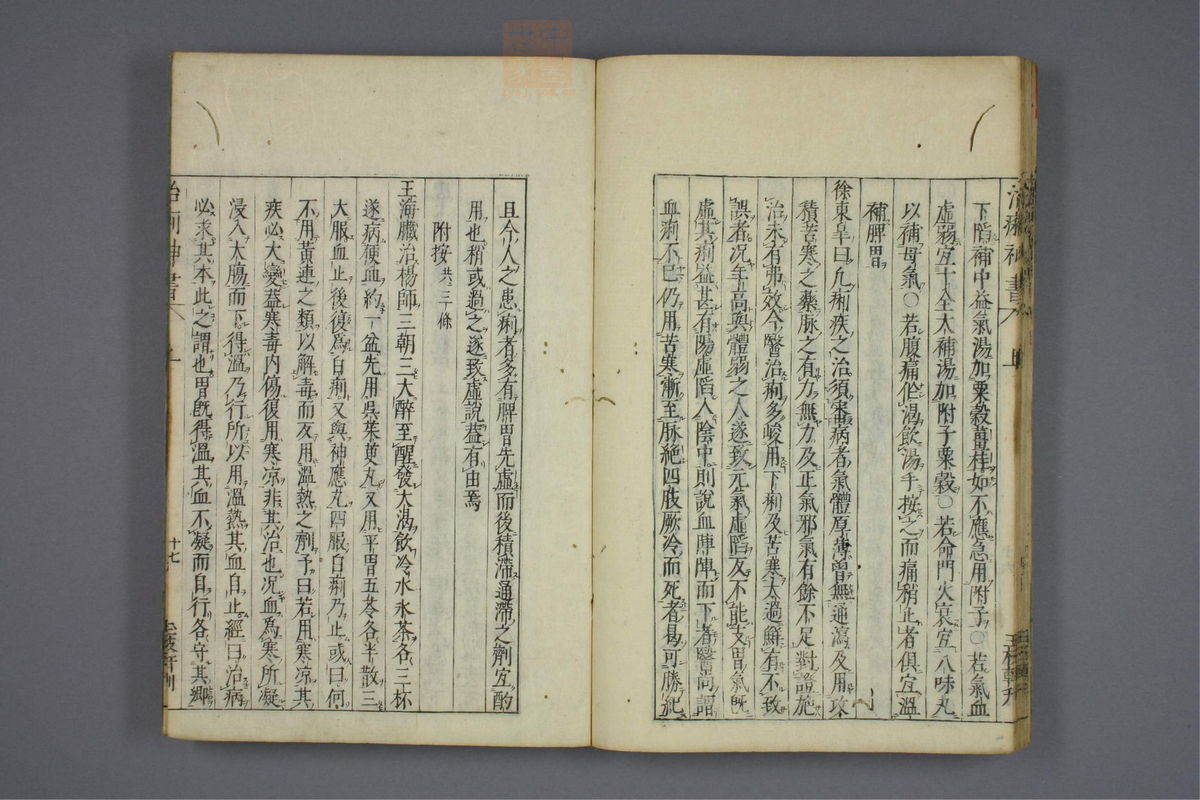 下陷補中益氣湯加粟殼薑梓如不應急用附子○若氣血
虛弱宜十全大補湯加附子粟殼○若命門火衰宜八味丸
以補母氣○若腹痛作渴飲湯手按之而痛稍止者俱宜溫
補脾胃
徐東皐曰凡痢疾之治須審病者氣體厚薄曾無通瀉及用攻
積苦寒之藥脉之有力無力及正氣邪氣有餘不足對證施
治未有弗效今醫治痢多峻用下痢及苦寒太過鮮有不致
誤者况年高與體弱之人遂致元氣虛陷反不能支胃氣既
虛其痢益甚有陽虛陷入陰中則說血陣陣而下者醫尚謂
血痢不已仍用苦寒漸至脉絕四肢厥冷而死者曷可勝紀
且今人之患痢者多有脾胃先虛而後積滯通滯之劑宜酌
用也稍或過之遂致虛說葢有由焉
附按 共三條
王海臟治楊師三朝三大醉至醒發大渴飲冷水氷茶各三杯
遂病便血約一盆先用吳茱萸丸又用平胃五苓各半散三
大服血止後復為白痢又與神應丸四服白痢乃止或曰何
不用黃連之類以解毒而反用溫熱之劑予曰若用寒凉其
疾必大變葢寒毒內傷復用寒凉非其治也况血為寒所凝
浸入大膓而下得溫乃行所以用溫熱其血自止經曰治病
必求其本此之謂也胃既得溫其血不凝而自行各守其鄉
治痢神書
十七